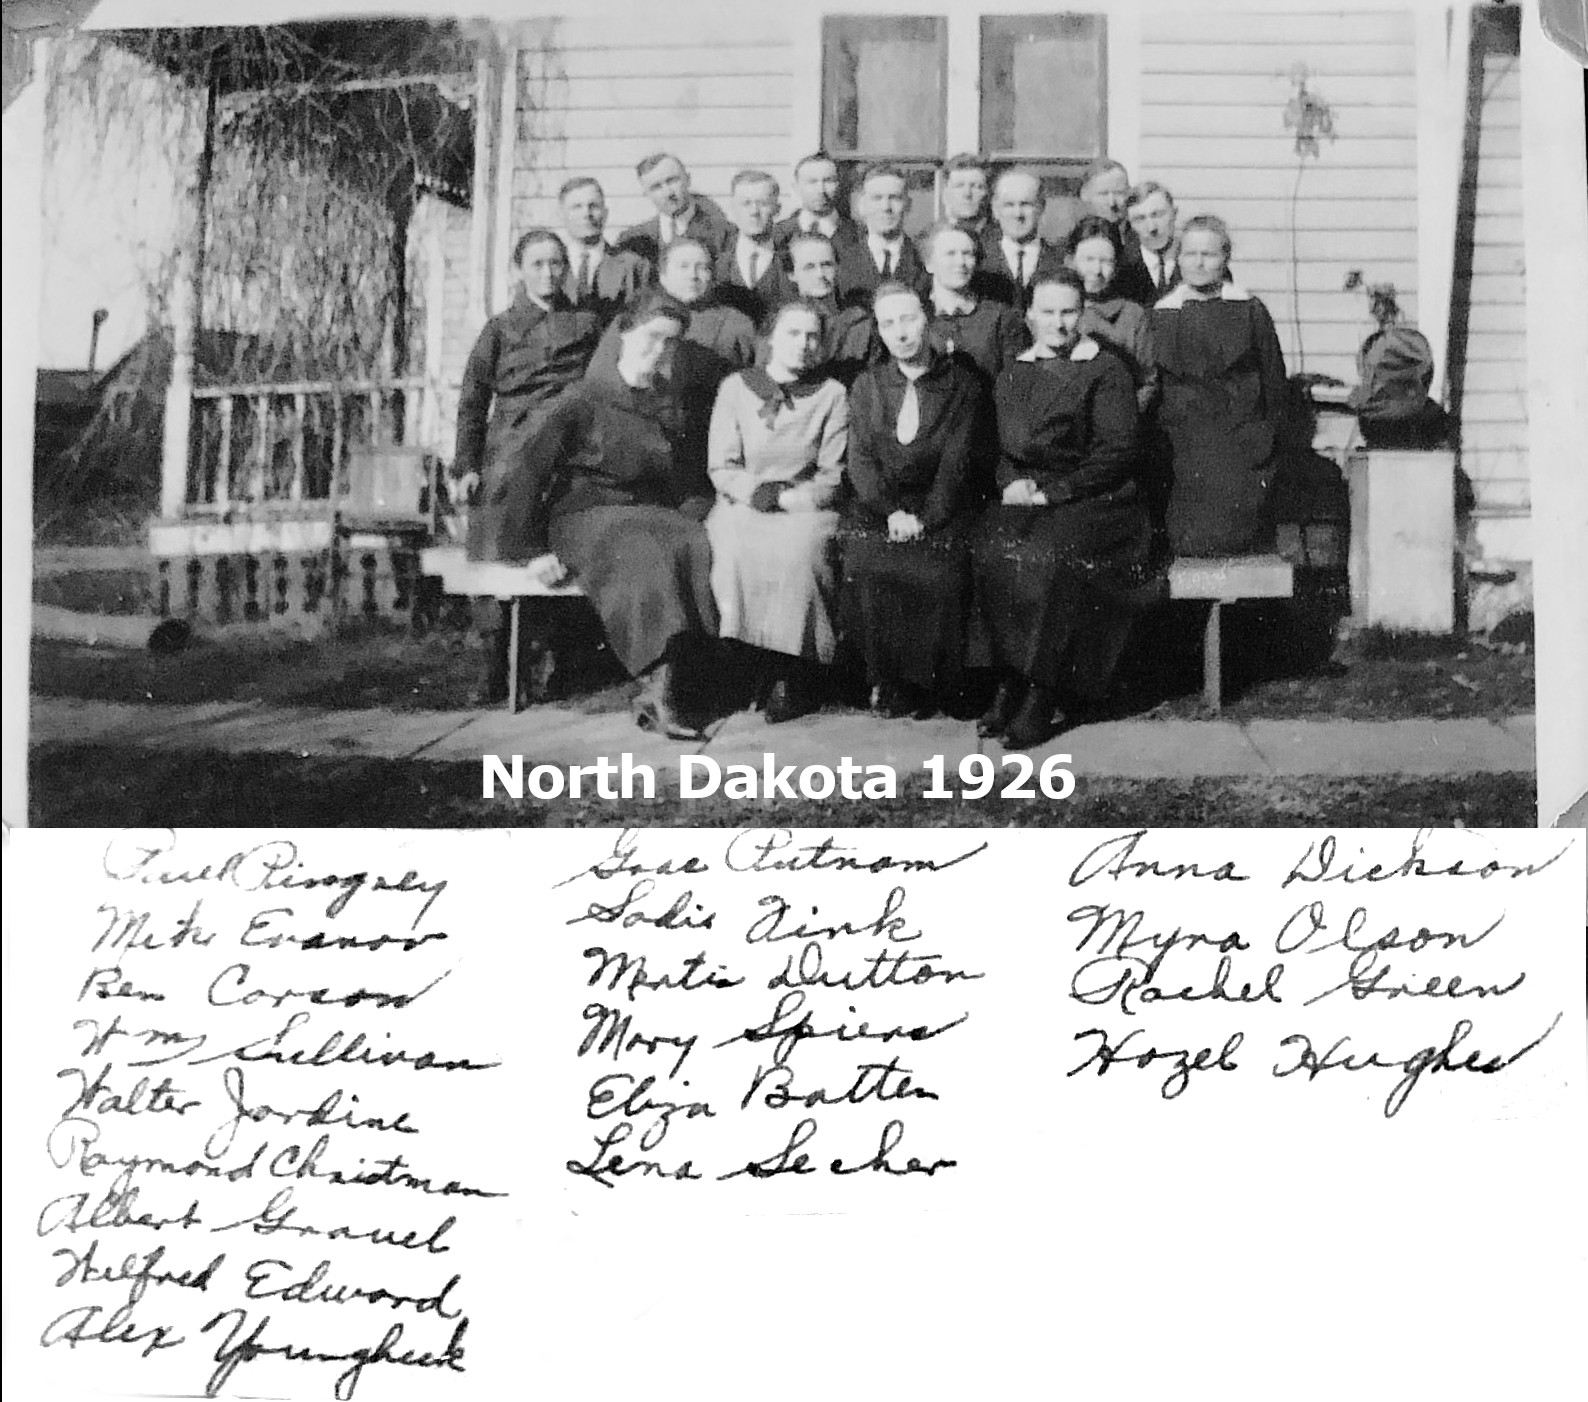 North Dakota 1926
Paul Ringney
Mike Evanow
Ben Carson
Wm Sullivan
Walter Jardine
Raymond Christman
Albert Gravel
Wilfred Edward
Alex
Putnam
Sadie Fink
Myrtie Dutton
Mary Spiers
Eliza Batten
Lena Secher
Anna Dickson
Myra Olson
Rachel Green
Hazel Hughes